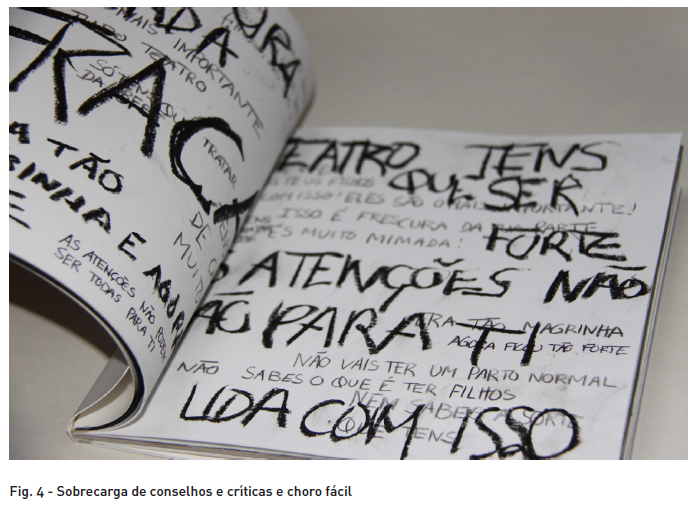 URA
MAIS IMPORTANTE
TUDO TEATRO
SÓ TENS QUE
TRATAR
FRAC
A TÃO
INHA E AGORA
E
DE
MUITO
AS ATENÇÕES NÃO PODEM
SER TODAS PARA TI
TEATRO TENS
QUE SER
COM ISSO! ELES SÃO O MAIS IMPORTANTE!
ISSO É FRESCURA DA TUA PARTE
ÉS MUITO MIMADA!
FORTE
ATENÇÕES NÃO
ÃO PARA TI
ERA TÃO MAGRINHA
AGORA FICOU TÃO FORTE
NÃO VAIS TER UM PARTO NORMAL
NÃO SABES O QUE É TER FILHOS
NEM SABES A SORTE
QUE TENS
LIDA COM ISSO
Fig. 4 - Sobrecarga de conselhos e críticas e choro fácil